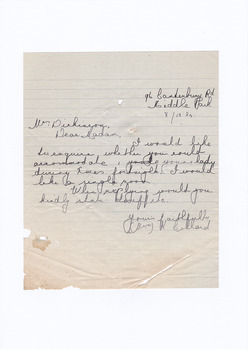 Canterbury Rd
Middle Park
Mrs Dickinson
Dear Madam,
I would like
to enquire whether you could
accommodate young lady
during Xmas fortnight. I would
like a single room
When replying would you
kindly state tariff
Yours faithfully